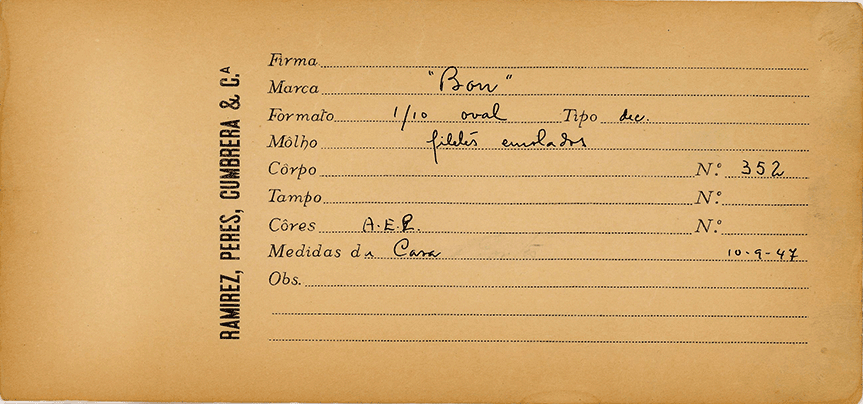 RAMIREZ, PERES, CUMBRERA & C.ᴬ
Firma
Marca "Bon"
Formato 1/10 oval Tipo dec.
Môlho filetes enrolados
Côrpo N.º 352
Tampo N.º
Côres A.E.P. N.º
Medidas da Casa 10-9-47
Obs.